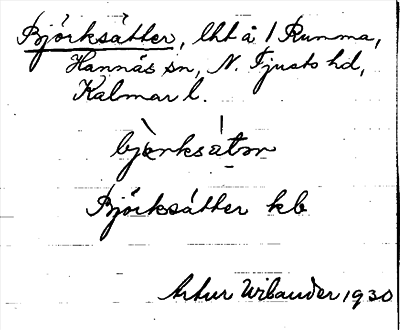 Björksätter, lht å 1 Rumma,
Hannäs sn, N. Tjusts hd,
Kalmar l.
bjærksa̱tər
Björksätter kb
Artur Wilander 1930